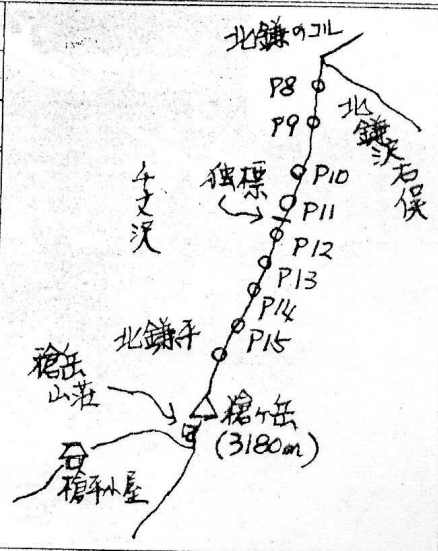 北鎌のコル
P8
P9
北鎌沢右俣
P10
独標
P11
千丈沢
P12
P13
P14
P15
北鎌平
槍岳
山荘
槍ヶ岳
(3180m)
槍平小屋